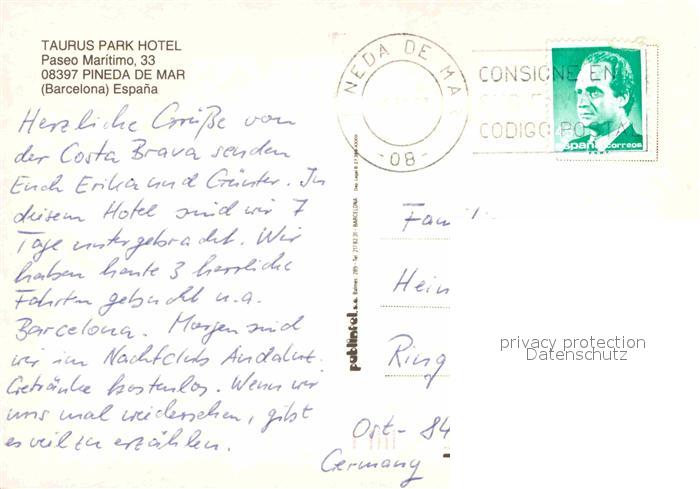 TAURUS PARK HOTEL
Paseo Marítimo, 33
08397 PINEDA DE MAR
(Barcelona) España
Herzliche Grüße von
der Costa Brava senden
Euch Erika und Günter. In
diesem Hotel sind wir 7
Tage untergebracht. Wir
haben heute 3 herrliche
Fahrten gebucht u.a.
Barcelona. Morgen sind
wir im Nachtclub Andaluz.
Getränke kostenlos. Wenn wir
uns mal wiedersehen, gibt
es viel zu erzählen.
NEDA DE MA
-08-
CONSIGNE EN
CODIGO POS
españa correos
publintel, s.a.
BARCELONA
Fami
Hein
Ring
Ost- 84
Germany
privacy protection
Datenschutz